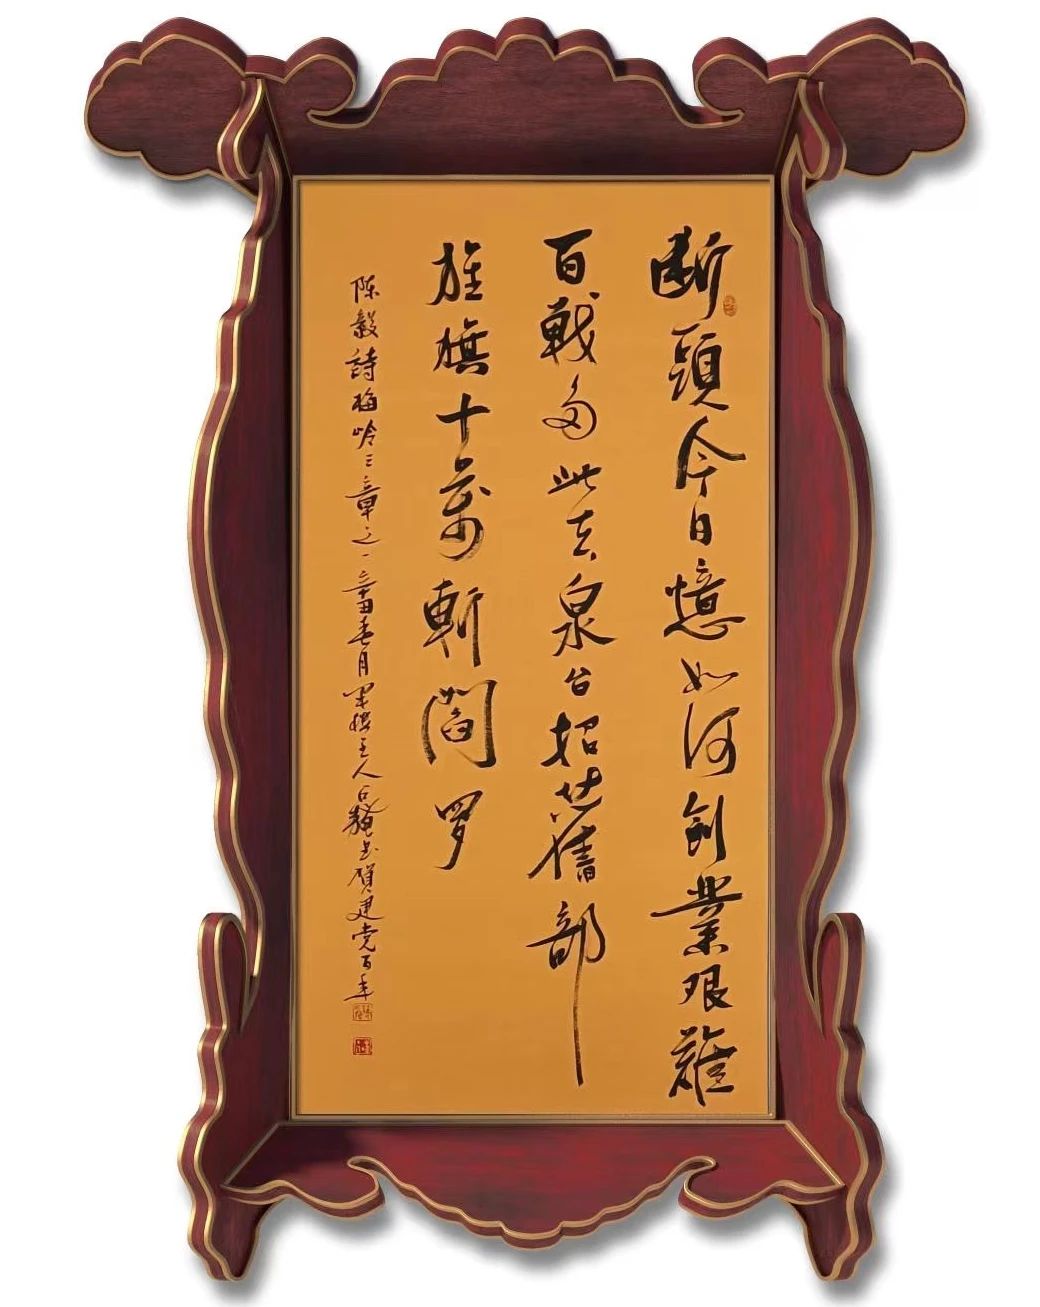 断頭今日憶如何創業艰難
百戰多此去泉台招舊部
旌旗十萬斬閻罗
陈毅詩梅岭三章之一辛丑春月主人书贺建党百年